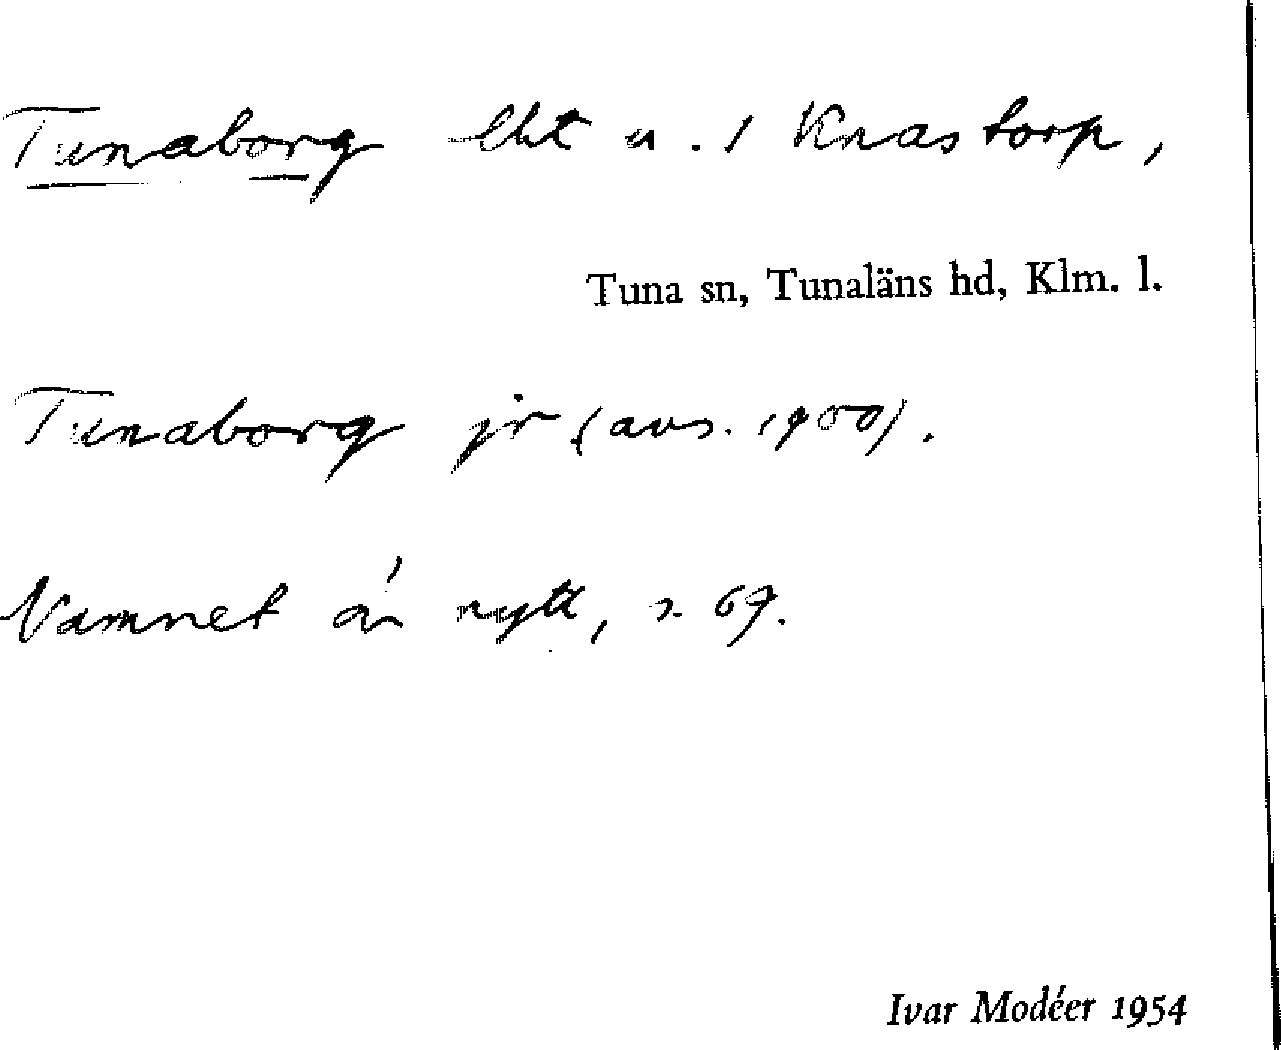 Tunaborg lht u. 1 Knastorp,
Tuna sn, Tunaläns hd, Klm. l.
Tunaborg jr (avs. 1900).
Namnet är nytt, s. 69.
Ivar Modéer 1954